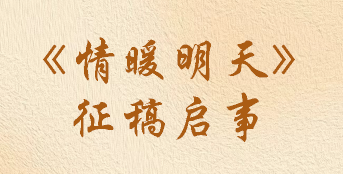 《情暖明天》
征稿启事